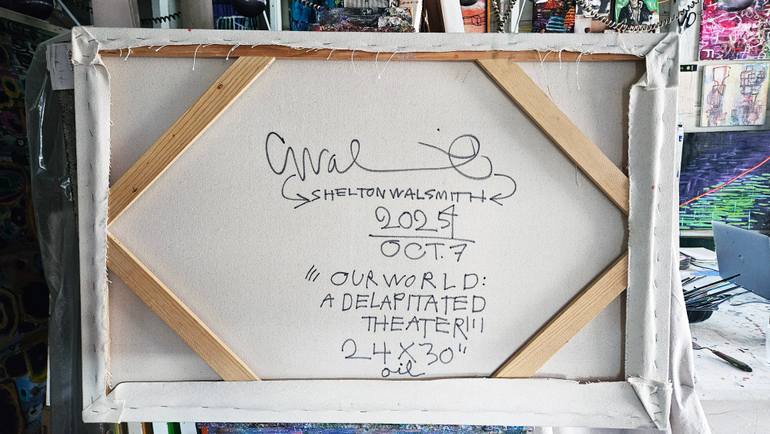 SHELTON WALSMITH
2025
OCT. 7
"OUR WORLD:
A DELAPITATED
THEATER!!!
24 X 30"
oil